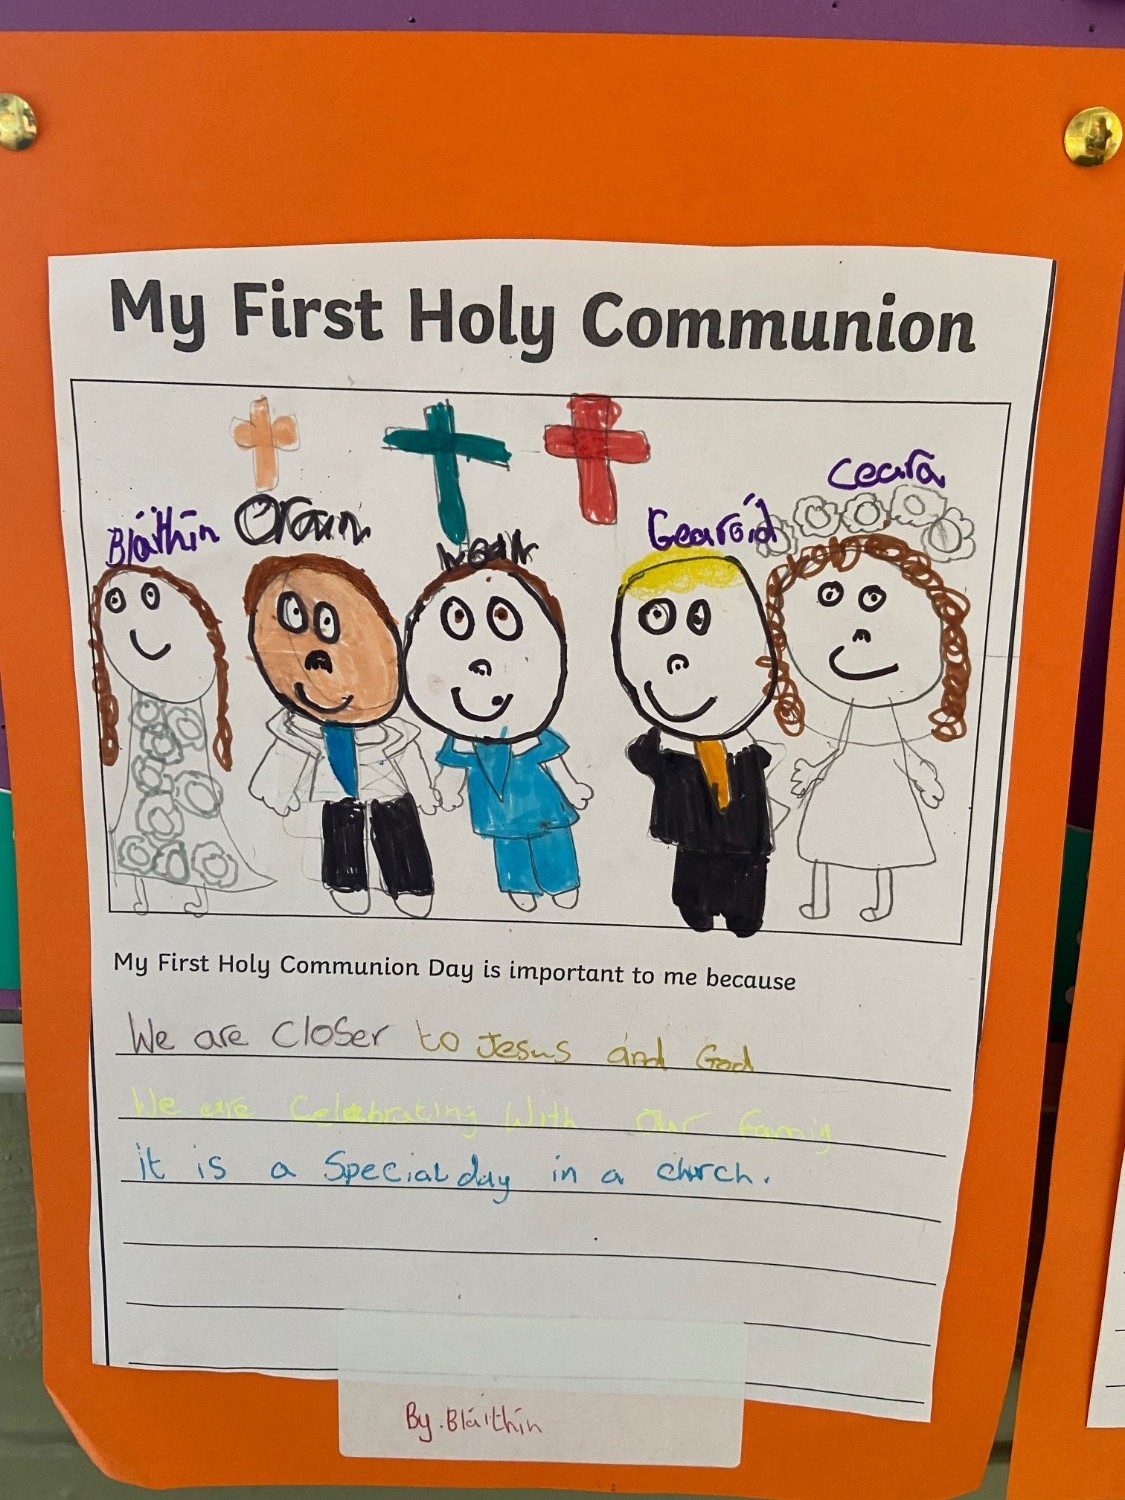 My First Holy Communion
Ceara
Bláithín Oran Noah Gearóid
My First Holy Communion Day is important to me because
We are closer to Jesus and God
We are Celebrating With Our Famiy
it is a Special day in a church.
By. Bláithín